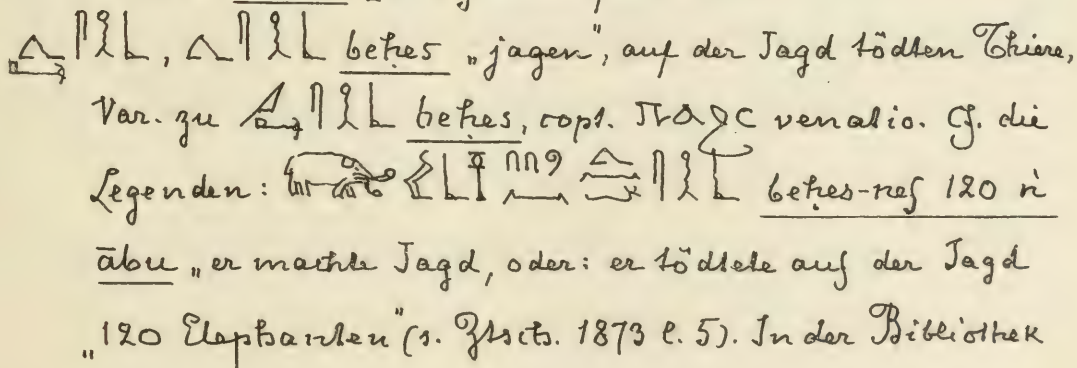 beḥes „jagen”, auf der Jagd tödten Thiere,
Var. zu beḥes, copt. ⲡⲁϩⲥ venatio. Cf. die
Legenden: beḥes-nef 120 n
ābu „er machte Jagd, oder: er tödtete auf der Jagd
„120 Elephanten” (s. Ztsch. 1873 l. 5). In der Bibliothek